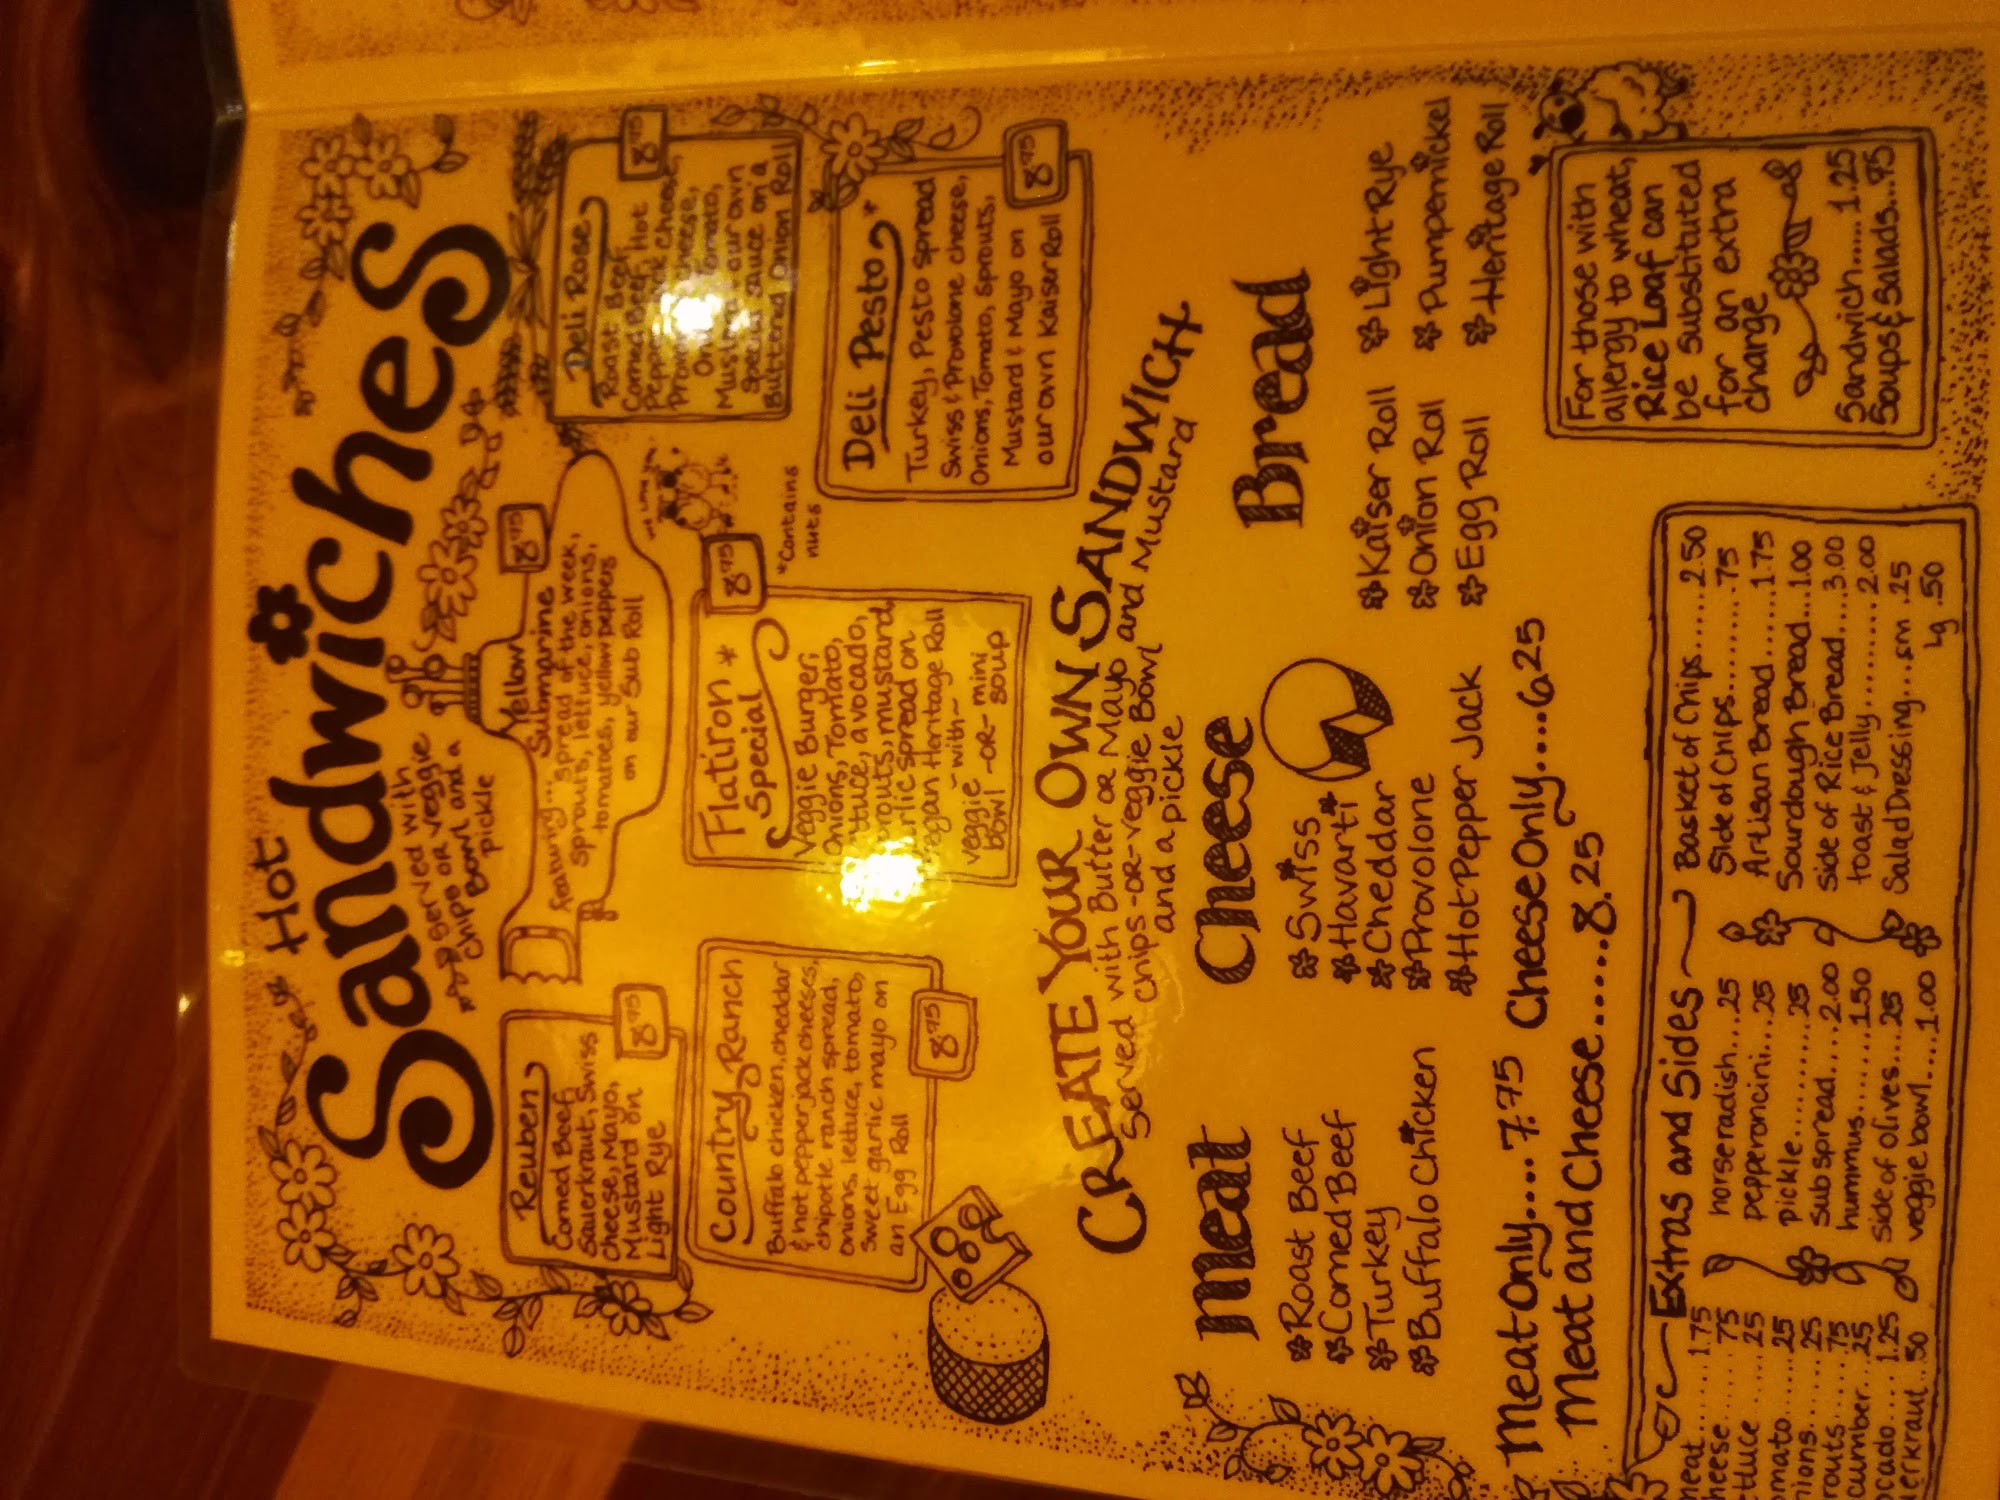 Hot
Sandwiches
served with
chips or veggie
bowl and a
pickle
Reuben
Corned Beef,
Sauerkraut, Swiss
Cheese, Mayo,
Mustard on
Light Rye
8.75
Yellow
Submarine
8.75
featuring... spread of the week,
sprouts, lettuce, onions,
tomatoes, yellow peppers
on our Sub Roll
Deli Rose
8.75
Roast Beef
Corned Beef, Hot
Mustard & our own
special sauce on a
Buttered Onion Roll
Country Ranch
Buffalo chicken, cheddar
& hot pepper jack cheeses,
chipotle ranch spread,
onions, lettuce, tomato,
sweet garlic mayo on
an Egg Roll
8.75
Flatiron *
Special
8.75
Veggie Burger,
Onions, Tomato,
lettuce, avocado,
sprouts, mustard,
garlic spread on
vegan Heritage Roll
~with~
veggie -OR- mini
bowl soup
*Contains
nuts
Deli Pesto*
Turkey, Pesto spread
Swiss & Provolone cheese,
Onions, Tomato, Sprouts,
Mustard & Mayo on
our own Kaiser Roll
8.75
CREATE YOUR OWN SANDWICH
Served with Butter or Mayo and Mustard
Chips -OR- Veggie Bowl
and a pickle
Meat
Roast Beef
Corned Beef
Turkey
Buffalo Chicken
Cheese
Swiss
Havarti
Cheddar
Provolone
Hot Pepper Jack
Bread
Kaiser Roll
Onion Roll
Egg Roll
Light Rye
Pumpernickel
Heritage Roll
Meat Only....7.75 Cheese Only....6.25
Meat and Cheese......8.25
Extras and Sides
meat.......1.75
cheese.......75
lettuce.....25
tomato.....25
onions.....25
sprouts.....75
cucumber..25
avocado....1.25
sauerkraut..50
horseradish...25
pepperoncini..25
pickle..........25
sub spread...2.00
hummus.......1.50
side of olives..25
veggie bowl....1.00
Basket of Chips.....2.50
Side of Chips........75
Artisan Bread......1.75
Sourdough Bread...1.00
Side of Rice Bread...3.00
toast & Jelly.........2.00
Salad Dressing....sm .25
lg .50
For those with
allergy to wheat,
Rice Loaf can
be substituted
for an extra
charge
Sandwich.....1.25
Soups & Salads...75